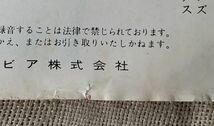 スズ
録音することは法律で禁じられております。
かえ、またはお引き取りいたしかねます。
ビア株式会社